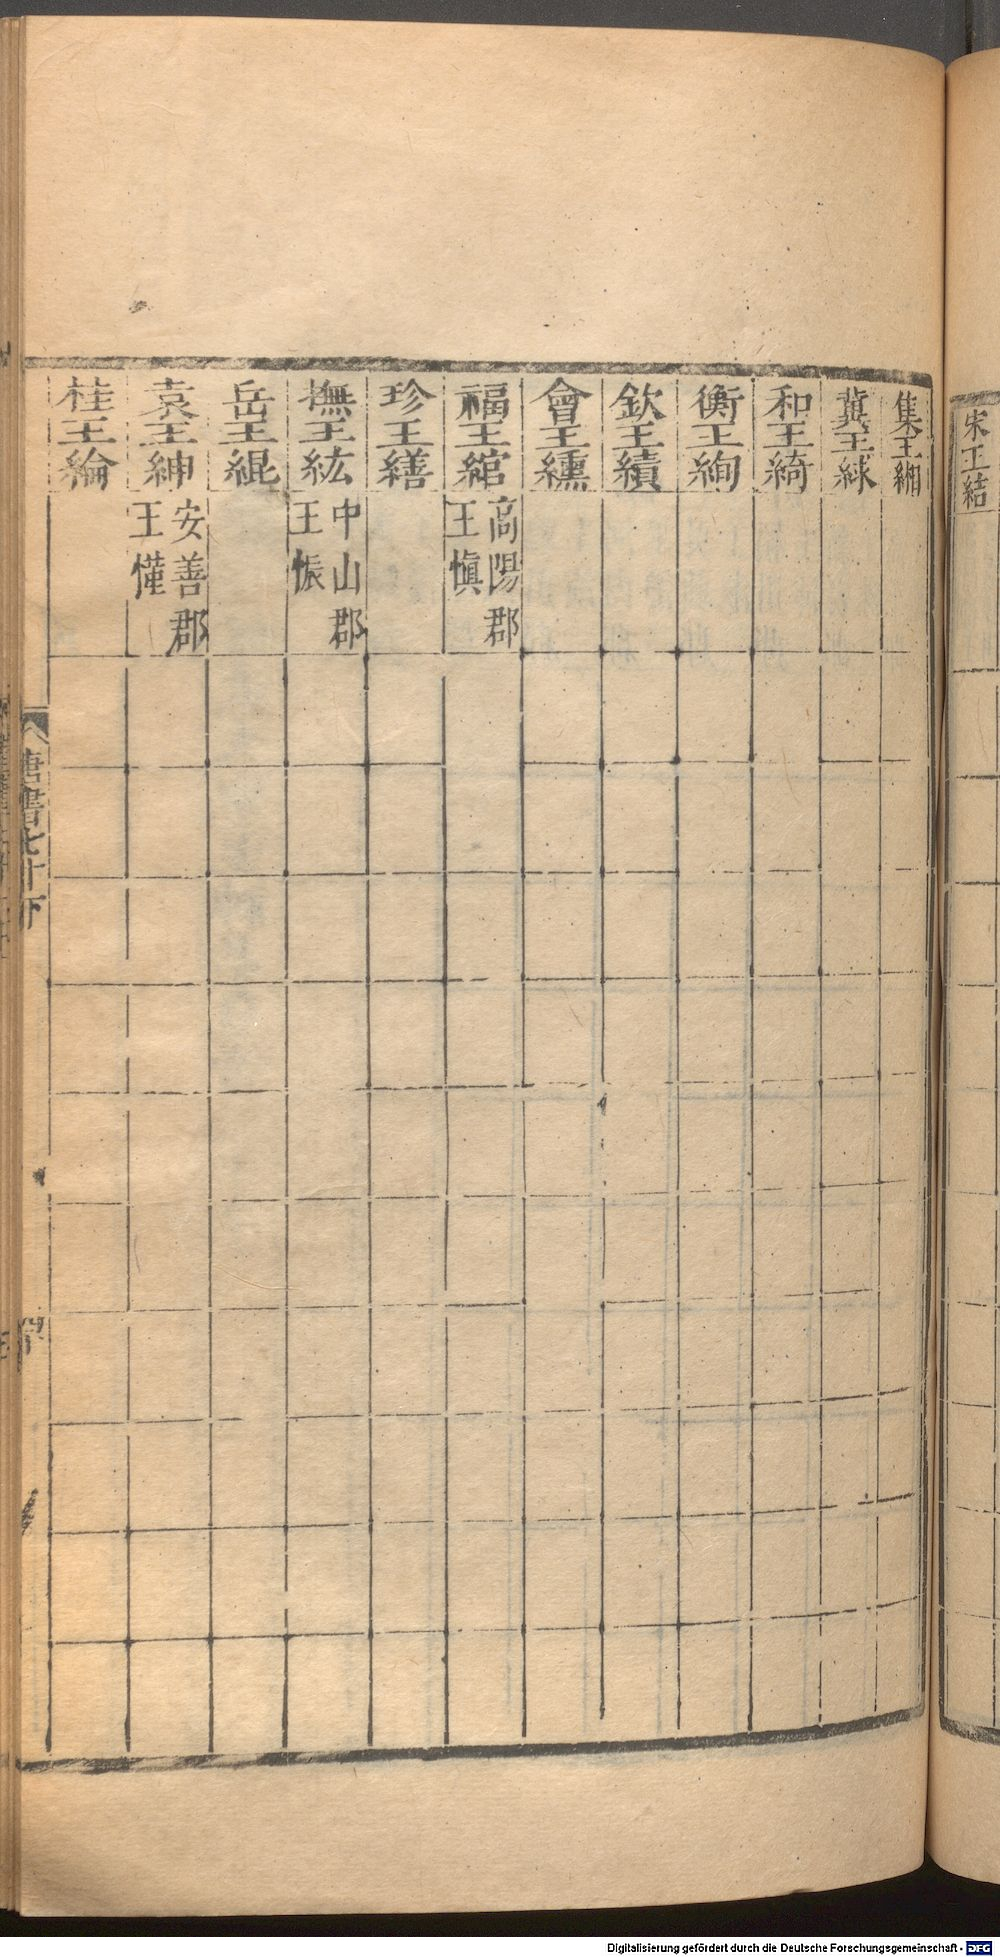 宋王結
集王緗
冀王絿
和王綺
衡王絢
欽王績
會王纁
福王綰
高陽郡
王慎
珍王繕
撫王紘
中山郡
王悵
岳王緄
袁王紳
安善郡
王慬
桂王綸
唐書七十下
Digitalisierung gefördert durch die Deutsche Forschungsgemeinschaft - DFG